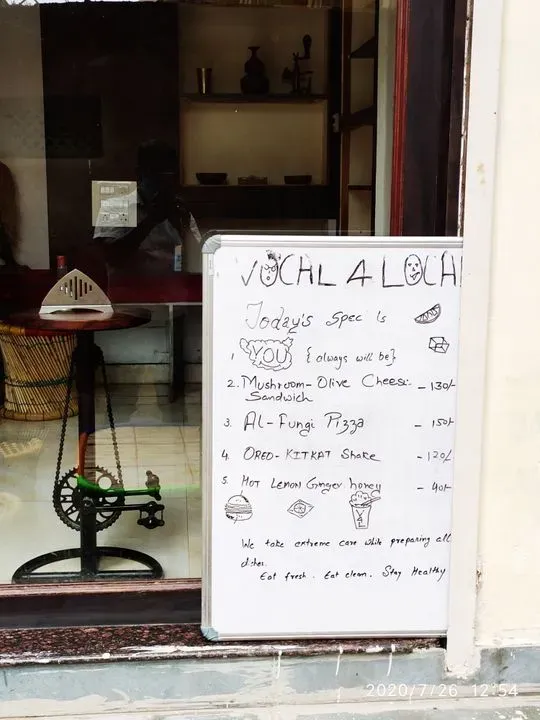 VOCAL 4 LOCAL
Today's Spec is
1. YOU {always will be}
2. Mushroom-Olive Cheese - 130/-
Sandwich
3. Al-Fungi Pizza - 150/-
4. OREO-KITKAT Shake - 120/-
5. HOT LEMON Ginger honey - 40/-
V
4
L
We take extreme care while preparing all
dishes.
Eat fresh. Eat clean. Stay Healthy
2020/7/26 12:54